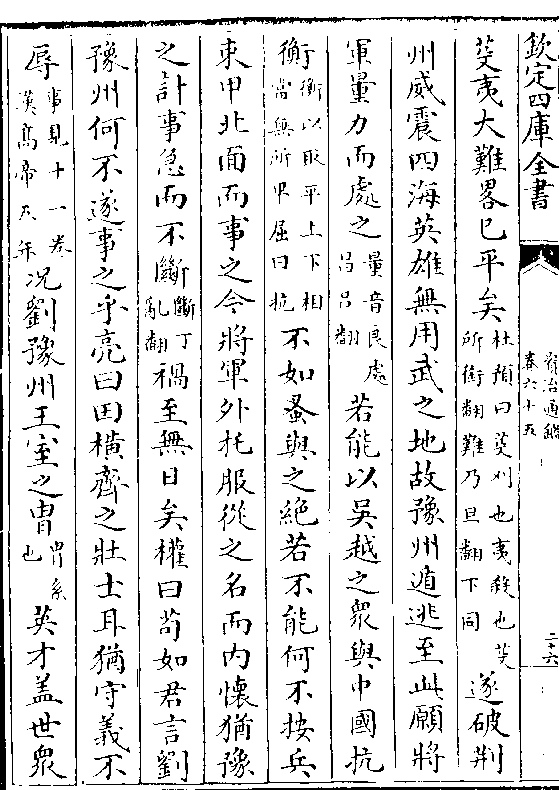 欽定四庫全書
資治通鑑
卷六十五
二十六
芟夷大難畧已平矣杜預曰芟刈也夷殺也芟所銜翻難乃旦翻下同遂破荆
州威震四海英雄無用武之地故豫州遁逃至此願將
軍量力而處之量音良處昌吕翻若能以吳越之衆與中國抗
衡衡以取平上下相當無所卑屈曰抗衡不如蚤與之絶若不能何不按兵
束甲北面而事之今將軍外托服從之名而内懷猶豫
之計事急而不斷斷丁亂翻禍至無日矣權曰苟如君言劉
豫州何不遂事之乎亮曰田橫齊之壯士耳猶守義不
辱事見十一卷漢高帝五年况劉豫州王室之胄胄系也英才盖世衆